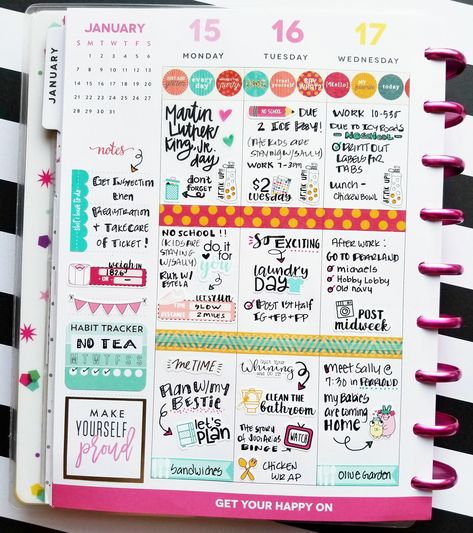 JANUARY
S M T W T F S
1 2 3 4 5 6
7 8 9 10 11 12 13
14 15 16 17 18 19 20
21 22 23 24 25 26 27
28 29 30 31
JANUARY
notes
GET INSPECTION
then
REGISTRATION
& TAKE CARE
OF TICKET!
weigh in
HABIT TRACKER
NO TEA
M T W T F S S
MAKE
YOURSELF
proud
15
MONDAY
every
day
Martin
Luther
King Jr.
day
don't
FORGET
DRINK UP!
NO SCHOOL!!
(KIDS ARE
STAYING
W/SALLY)
RUN W/
ESTELA
do it
for
you
let's RUN
TIME SLOW
DISTANCE 2 MILES
me TIME
Plan w/ my
BESTIE
let's
PLAN
Sandwiches
16
TUESDAY
treat
yourself
SAY
WHAT?
NO SCHOOL
DUE
2 ICE
(THE KIDS ARE
STAYING W/SALLY)
WORK 7-3PM
$2
TUESDAY
DRINK UP!
SO EXCITING
LAUNDRY
DAY
POST 1ST HALF
IG + FB + PP
Quit Your
Whining
and DO IT
CLEAN THE
bathroom
BINGE
WATCH
CHICKEN
WRAP
17
WEDNESDAY
[Hello]
today
WORK 10-5:30
DUE TO ICY ROADS
NO SCHOOL
PRINT OUT
LABELS FOR
TABS
LUNCH -
CHICKEN BOWL
DRINK UP!
AFTER WORK:
GO TO PEARLAND
michaels
Hobby Lobby
Old navy
POST
midweek
MEET SALLY @
7:30 IN PEARLAND
my Babies
are coming
HOME
OLIVE GARDEN
GET YOUR HAPPY ON